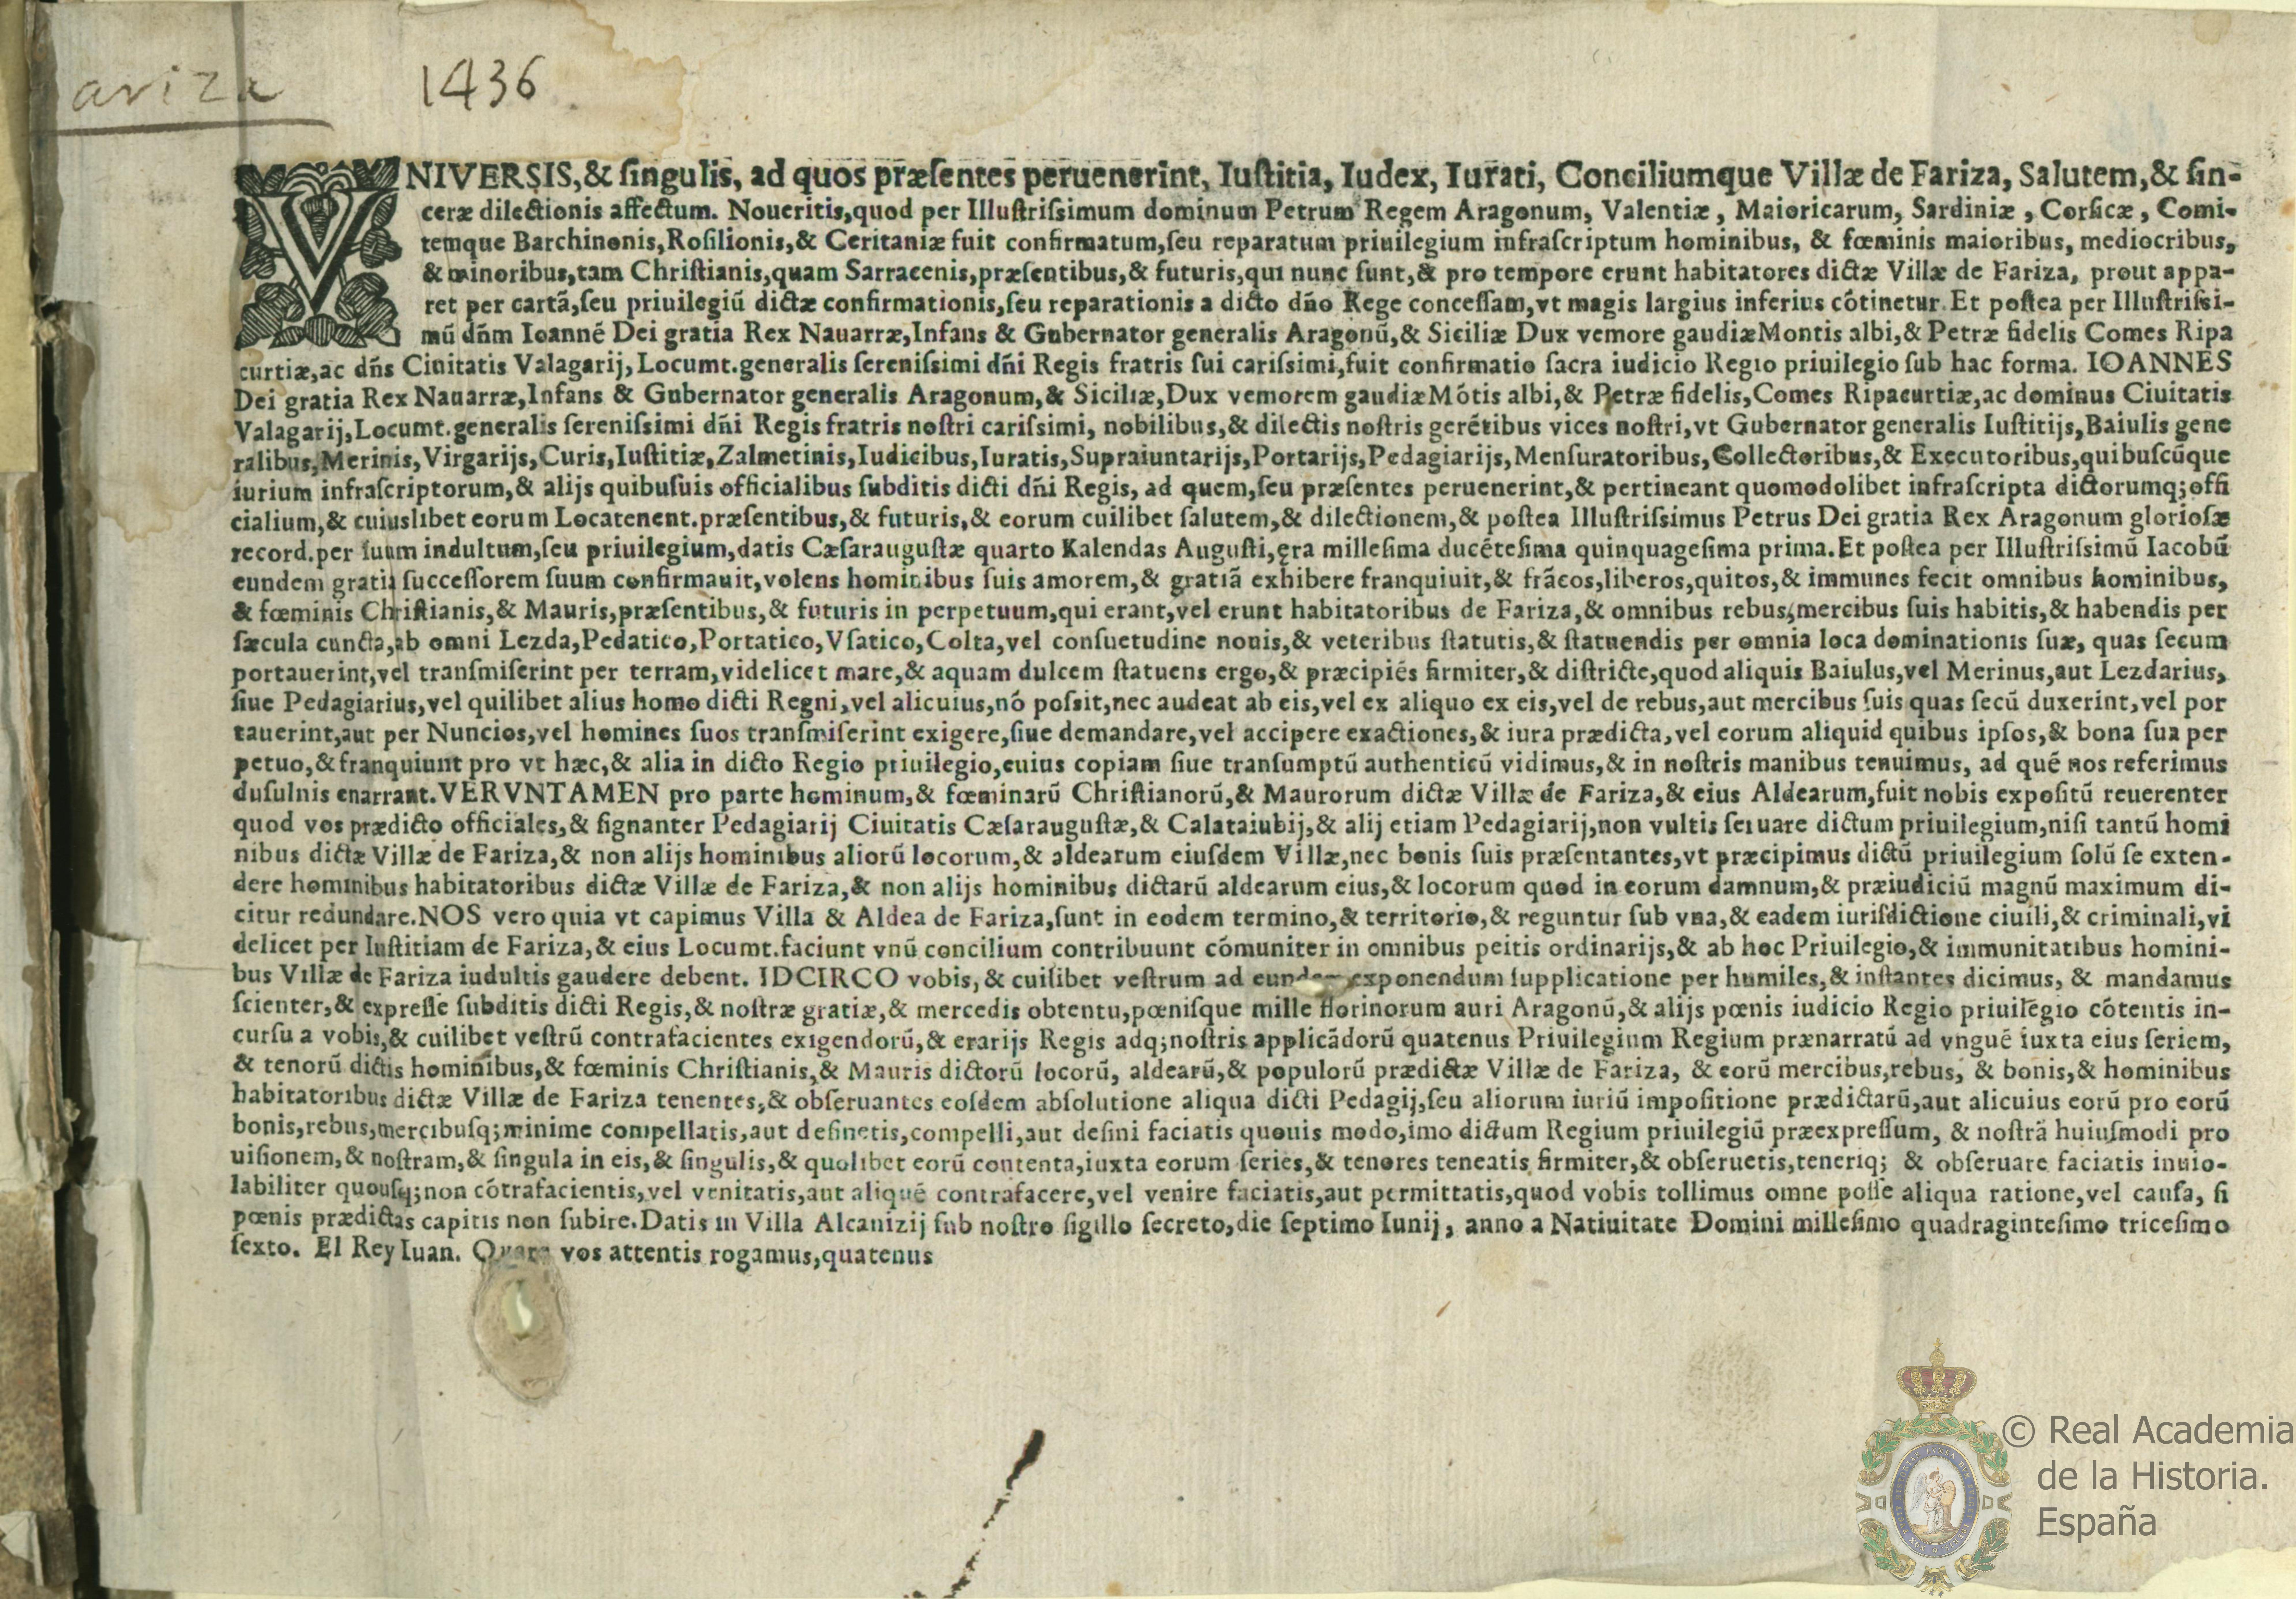 ariza
1436
VNIVERSIS,& ſingulis, ad quos præſentes peruenerint, Iuſtitia, Iudex, Iurati, Conciliumque Villæ de Fariza, Salutem,& ſin-
ceræ dilectionis affectum. Noueritis,quod per Illuſtriſsimum dominum Petrum Regem Aragonum, Valentiæ, Maioricarum, Sardiniæ, Corſicæ, Comi-
temque Barchinonis,Roſilionis,& Ceritaniæ fuit confirmatum,ſeu reparatum priuilegium infraſcriptum hominibus, & fœminis maioribus, mediocribus,
& minoribus,tam Chriſtianis,quam Sarracenis,præſentibus,& futuris,qui nunc ſunt,& pro tempore erunt habitatores dictæ Villæ de Fariza, prout appa-
ret per cartã,ſeu priuilegiũ dictæ confirmationis,ſeu reparationis a dicto dño Rege conceſſam,vt magis largius inferius cõtinetur. Et poſtea per Illuſtriſsi-
mũ dñm Ioannẽ Dei gratia Rex Nauarræ,Infans & Gubernator generalis Aragonũ,& Siciliæ Dux vemore gaudiæMontis albi,& Petræ fidelis Comes Ripa
curtiæ,ac dñs Ciuitatis Valagarij,Locumt.generalis ſereniſsimi dñi Regis fratris ſui cariſsimi,fuit confirmatio ſacra iudicio Regio priuilegio ſub hac forma. IOANNES
Dei gratia Rex Nauarræ,Infans & Gubernator generalis Aragonum,& Siciliæ,Dux vemorem gaudiæMõtis albi,& Petræ fidelis,Comes Ripacurtiæ,ac dominus Ciuitatis
Valagarij,Locumt.generalis ſereniſsimi dñi Regis fratris noſtri cariſsimi, nobilibus,& dilectis noſtris gerẽtibus vices noſtri,vt Gubernator generalis Iuſtitijs,Baiulis gene
ralibus,Merinis,Virgarijs,Curis,Iuſtitiæ,Zalmetinis,Iudicibus,Iuratis,Supraiuntarijs,Portarijs,Pedagiarijs,Menſuratoribus,Collectoribus,& Executoribus,quibuſcũque
iurium infraſcriptorum,& alijs quibuſuis officialibus ſubditis dicti dñi Regis, ad quem,ſeu præſentes peruenerint,& pertineant quomodolibet infraſcripta dictorumq;offi
cialium,& cuiuslibet eorum Locatenent.præſentibus,& futuris,& eorum cuilibet ſalutem,& dilectionem,& poſtea Illuſtriſsimus Petrus Dei gratia Rex Aragonum glorioſæ
record.per ſuum indultum,ſeu priuilegium,datis Cæſarauguſtæ quarto Kalendas Auguſti,ęra milleſima ducẽteſima quinquageſima prima.Et poſtea per Illuſtriſsimũ Iacobũ
eundem gratia ſucceſſorem ſuum confirmauit,volens hominibus ſuis amorem,& gratiã exhibere franquiuit,& frãcos,liberos,quitos,& immunes fecit omnibus hominibus,
& fœminis Chriſtianis,& Mauris,præſentibus,& futuris in perpetuum,qui erant,vel erunt habitatoribus de Fariza,& omnibus rebus,mercibus ſuis habitis,& habendis per
ſæcula cuncta,ab omni Lezda,Pedatico,Portatico,Vſatico,Colta,vel conſuetudine nouis,& veteribus ſtatutis,& ſtatuendis per omnia loca dominationis ſuæ, quas ſecum
portauerint,vel tranſmiſerint per terram,videlicet mare,& aquam dulcem ſtatuens ergo,& præcipiẽs firmiter,& diſtricte,quod aliquis Baiulus,vel Merinus,aut Lezdarius,
ſiue Pedagiarius,vel quilibet alius homo dicti Regni,vel alicuius,nõ poſsit,nec audeat ab eis,vel ex aliquo ex eis,vel de rebus,aut mercibus ſuis quas ſecũ duxerint,vel por
tauerint,aut per Nuncios,vel homines ſuos tranſmiſerint exigere,ſiue demandare,vel accipere exactiones,& iura prædicta,vel eorum aliquid quibus ipſos,& bona ſua per
petuo,& franquiunt pro vt hæc,& alia in dicto Regio priuilegio,cuius copiam ſiue tranſumptũ authenticũ vidimus,& in noſtris manibus tenuimus, ad quẽ nos referimus
duſulnis enarrant.VERVNTAMEN pro parte hominum,& fœminarũ Chriſtianorũ,& Maurorum dictæ Villæ de Fariza,& eius Aldearum,fuit nobis expoſitũ reuerenter
quod vos prædicto officiales,& ſignanter Pedagiarij Ciuitatis Cæſarauguſtæ,& Calataiubij,& alij etiam Pedagiarij,non vultis ſeruare dictum priuilegium,niſi tantũ homi
nibus dictæ Villæ de Fariza,& non alijs hominibus aliorũ locorum,& aldearum eiuſdem Villæ,nec bonis ſuis præſentantes,vt præcipimus dictũ priuilegium ſolũ ſe exten-
dere hominibus habitatoribus dictæ Villæ de Fariza,& non alijs hominibus dictarũ aldearum eius,& locorum quod in eorum damnum,& præiudiciũ magnũ maximum di-
citur redundare.NOS vero quia vt capimus Villa & Aldea de Fariza,ſunt in eodem termino,& territorio,& reguntur ſub vna,& eadem iuriſdictione ciuili,& criminali,vi
delicet per Iuſtitiam de Fariza,& eius Locumt.faciunt vnũ concilium contribuunt cõmuniter in omnibus peitis ordinarijs,& ab hoc Priuilegio,& immunitatibus homini-
bus Villæ de Fariza iudultis gaudere debent. IDCIRCO vobis,& cuilibet veſtrum ad exponendum ſupplicatione per humiles,& inſtantes dicimus, & mandamus
ſcienter,& expreſſe ſubditis dicti Regis,& noſtræ gratiæ,& mercedis obtentu,pœniſque mille florinorum auri Aragonũ,& alijs pœnis iudicio Regio priuilegio cõtentis in-
curſu a vobis,& cuilibet veſtrũ contrafacientes exigendorũ,& erarijs Regis adq;noſtris applicãdorũ quatenus Priuilegium Regium prænarratũ ad vnguẽ iuxta eius ſeriem,
& tenorũ dictis hominibus,& fœminis Chriſtianis,& Mauris dictorũ locorũ, aldearũ,& populorũ prædictæ Villæ de Fariza, & eorũ mercibus,rebus, & bonis,& hominibus
habitatoribus dictæ Villæ de Fariza tenentes,& obſeruantes eoſdem abſolutione aliqua dicti Pedagij,ſeu aliorum iuriũ impoſitione prædictarũ,aut alicuius eorũ pro eorũ
bonis,rebus,mercibuſq;minime compellatis,aut deſinetis,compelli,aut deſini faciatis quouis modo,imo dictum Regium priuilegiũ præexpreſſum, & noſtrã huiuſmodi pro
uiſionem,& noſtram,& ſingula in eis,& ſingulis,& quolibet eorũ contenta,iuxta eorum ſeries,& tenores teneatis firmiter,& obſeruetis,teneriq; & obſeruare faciatis inuio-
labiliter quouſq;non cõtrafacientis,vel venitatis,aut aliquẽ contrafacere,vel venire faciatis,aut permittatis,quod vobis tollimus omne poſſe aliqua ratione,vel cauſa, ſi
pœnis prædictas capitis non ſubire.Datis in Villa Alcanizij ſub noſtro ſigillo ſecreto,die ſeptimo Iunij, anno a Natiuitate Domini milleſimo quadraginteſimo triceſimo
ſexto. El Rey Iuan. vos attentis rogamus,quatenus
© Real Academia
de la Historia.
España